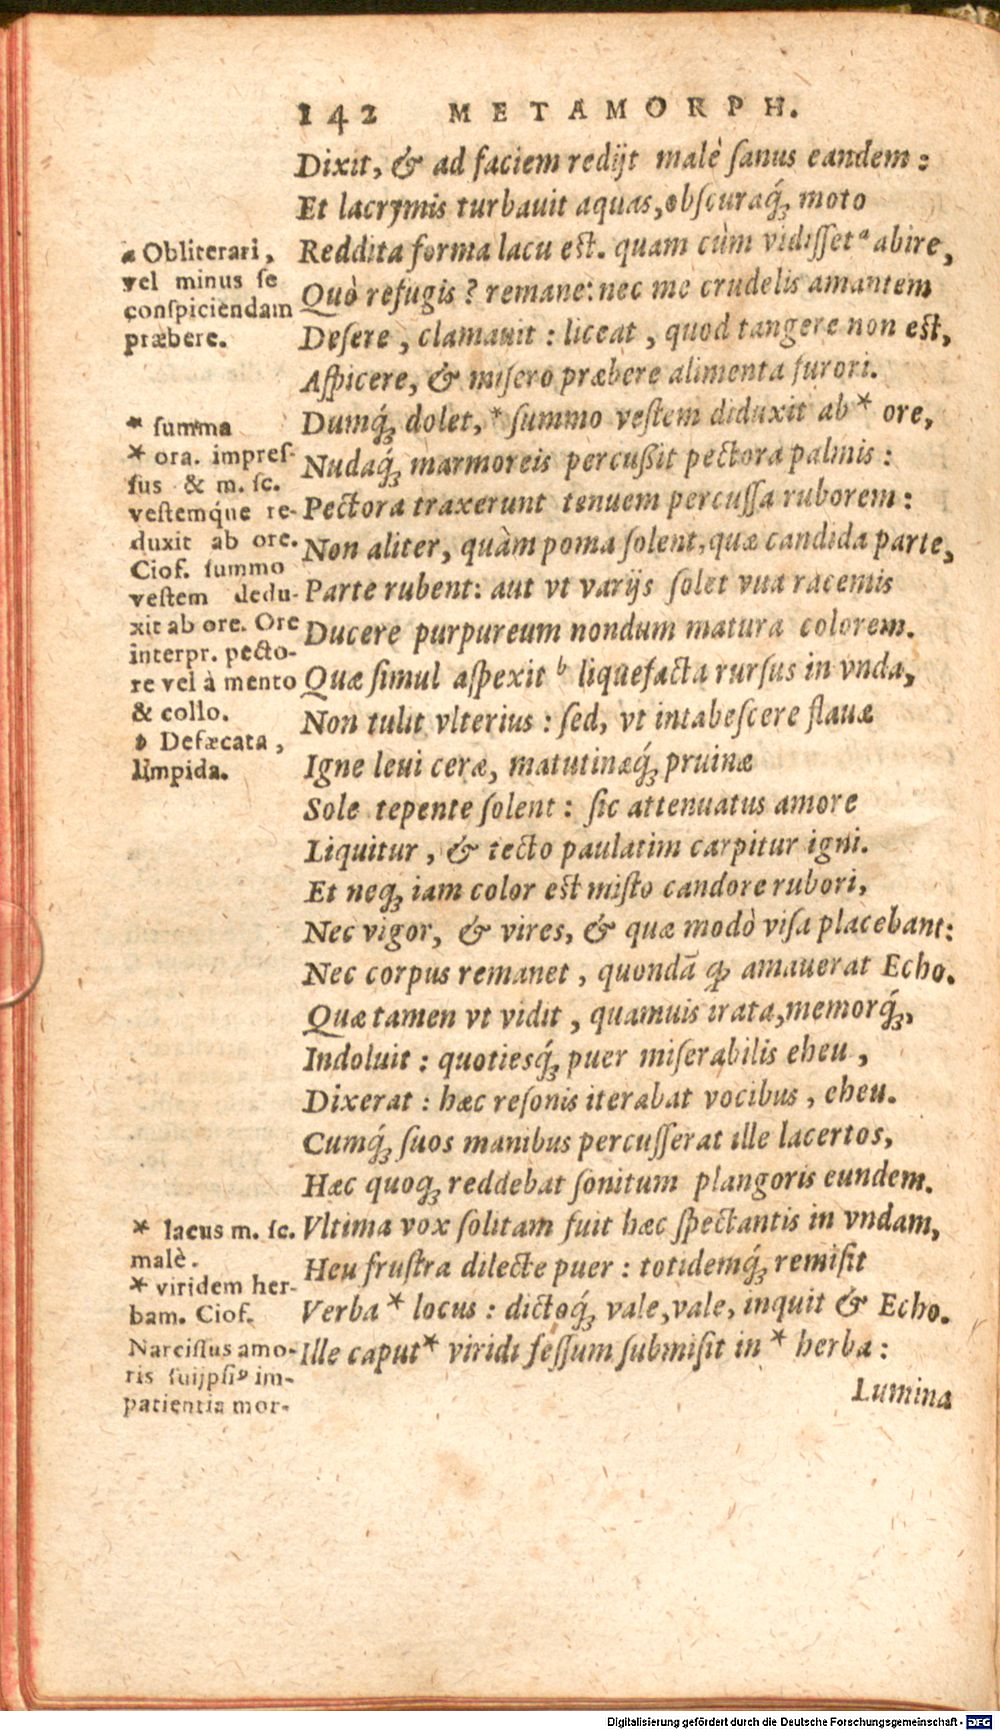 142 METAMORPH.
Dixit, & ad faciem redijt malè ſanus eandem:
Et lacrymis turbavit aquas, obſcuraq́; moto
Reddita forma lacu eſt. quam cùm vidiſſet ᵃ abire,
Quò refugis? remane: nec me crudelis amantem
Deſere, clamavit: liceat, quod tangere non eſt,
Aſpicere, & miſero præbere alimenta furori.
Dumq́; dolet, * ſummo veſtem diduxit ab * ore,
Nudaq́; marmoreis percußit pectora palmis:
Pectora traxerunt tenuem percuſſa ruborem:
Non aliter, quàm poma ſolent, quæ candida parte,
Parte rubent: aut vt varijs ſolet vua racemis
Ducere purpureum nondum matura colorem.
Quæ ſimul aſpexit ᵇ liquefacta rurſus in vnda,
Non tulit vlterius: ſed, vt intabeſcere flauæ
Igne leui ceræ, matutinæq́; pruinæ
Sole tepente ſolent: ſic attenuatus amore
Liquitur, & tecto paulatim carpitur igni.
Et neq; iam color eſt miſto candore rubori,
Nec vigor, & vires, & quæ modò viſa placebant:
Nec corpus remanet, quondã ꝙ amauerat Echo.
Quæ tamen vt vidit, quamuis irata, memorq́;,
Indoluit: quotiesq́; puer miſerabilis eheu,
Dixerat: hæc reſonis iterabat vocibus, eheu.
Cumq́; ſuos manibus percuſſerat ille lacertos,
Hæc quoq; reddebat ſonitum plangoris eundem.
Vltima vox ſolitam fuit hæc ſpectantis in vndam,
Heu fruſtra dilecte puer: totidemq́; remiſit
Verba * locus: dictoq́; vale, vale, inquit & Echo.
Ille caput * viridi feſſum ſubmiſit in * herba:
Lumina
a Obliterari,
vel minus ſe
conſpiciendam
præbere.
* ſumma
* ora. impreſ-
ſus & m. ſc.
veſtemq́ue re-
duxit ab ore.
Cioſ. ſummo
veſtem dedu-
xit ab ore. Ore
interpr. pecto-
re vel à mento
& collo.
b Defæcata,
limpida.
* lacus m. ſc.
malè.
* viridem her-
bam. Cioſ.
Narciſſus amo-
ris ſuijpſiꝰ im-
patientia mor-
Digitalisierung gefördert durch die Deutsche Forschungsgemeinschaft - DFG